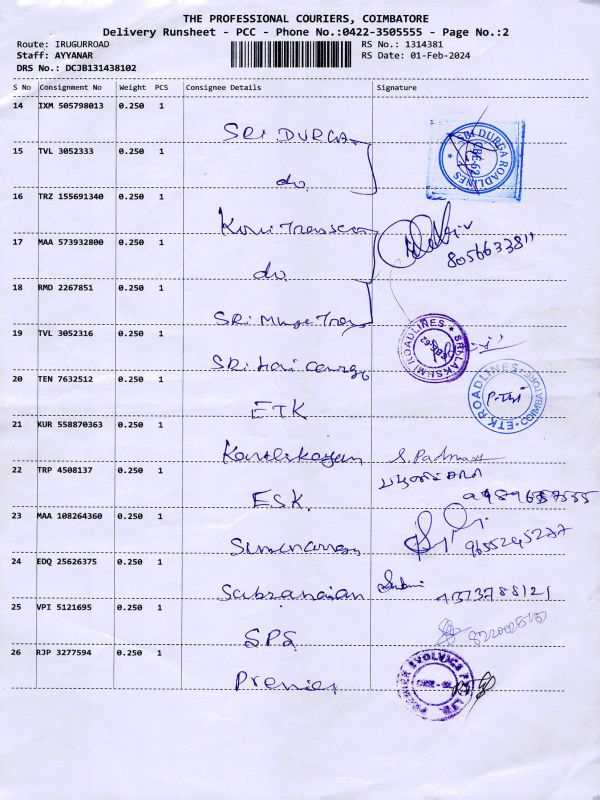 THE PROFESSIONAL COURIERS, COIMBATORE
Delivery Runsheet - PCC - Phone No.:0422-3505555 - Page No.:2
Route: IRUGURROAD
RS No.: 1314381
Staff: AYYANAR
RS Date: 01-Feb-2024
DRS No.: DCJB131438102
S No Consignment No Weight PCS Consignee Details Signature
14 IXM 505798013 0.250 1
SRI DURGA
SRI DURGA ROADLINES
CBE-62
15 TVL 3052333 0.250 1
do
16 TRZ 155691340 0.250 1
17 MAA 573932800 0.250 1
8056633811
do
18 RMD 2267851 0.250 1
SRi
19 TVL 3052316 0.250 1
SRI LAKSHMI ROADLINES
SRi Hari Cargo
20 TEN 7632512 0.250 1
ETK
ETK ROADLINES COIMBATORE
21 KUR 558870363 0.250 1
S. Padma
22 TRP 4508137 0.250 1
ESK
23 MAA 108264360 0.250 1
9655245277
24 EDQ 25626375 0.250 1
25 VPI 5121695 0.250 1
SPS
26 RJP 3277594 0.250 1
Premier